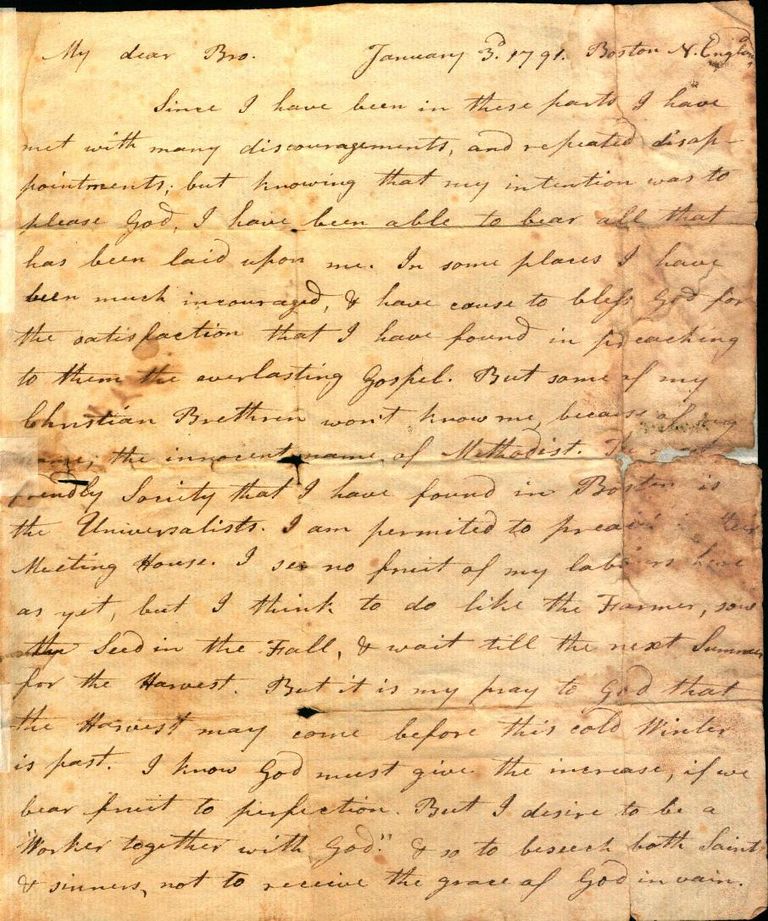 My dear Bro. January 3d. 1791. Boston N. England
Since I have been in these parts I have
met with many discouragements, and repeated disap-
pointments; but knowing that my intention was to
please God, I have been able to bear all that
has been laid upon me. In some places I have
been much incouraged, & have cause to bless God for
the satisfaction that I have found in preaching
to them the everlasting Gospel. But some of my
Christian Brethren won't know me, because of my
the innocent name, of Methodist. The
friendly Society that I have found in Boston is
the Universalists. I am permited to preach in their
Meeting House. I see no fruit of my labours here
as yet, but I think to do like the Farmer, sow
the Seed in the Fall, & wait till the next Summer
for the Harvest. But it is my pray to God that
the Harvest may come before this cold Winter
is past. I know God must give the increase, if we
bear fruit to perfection. But I desire to be a
"Worker together with God." & so to beseech both Saint
& sinners, not to receive the grace of God in vain.